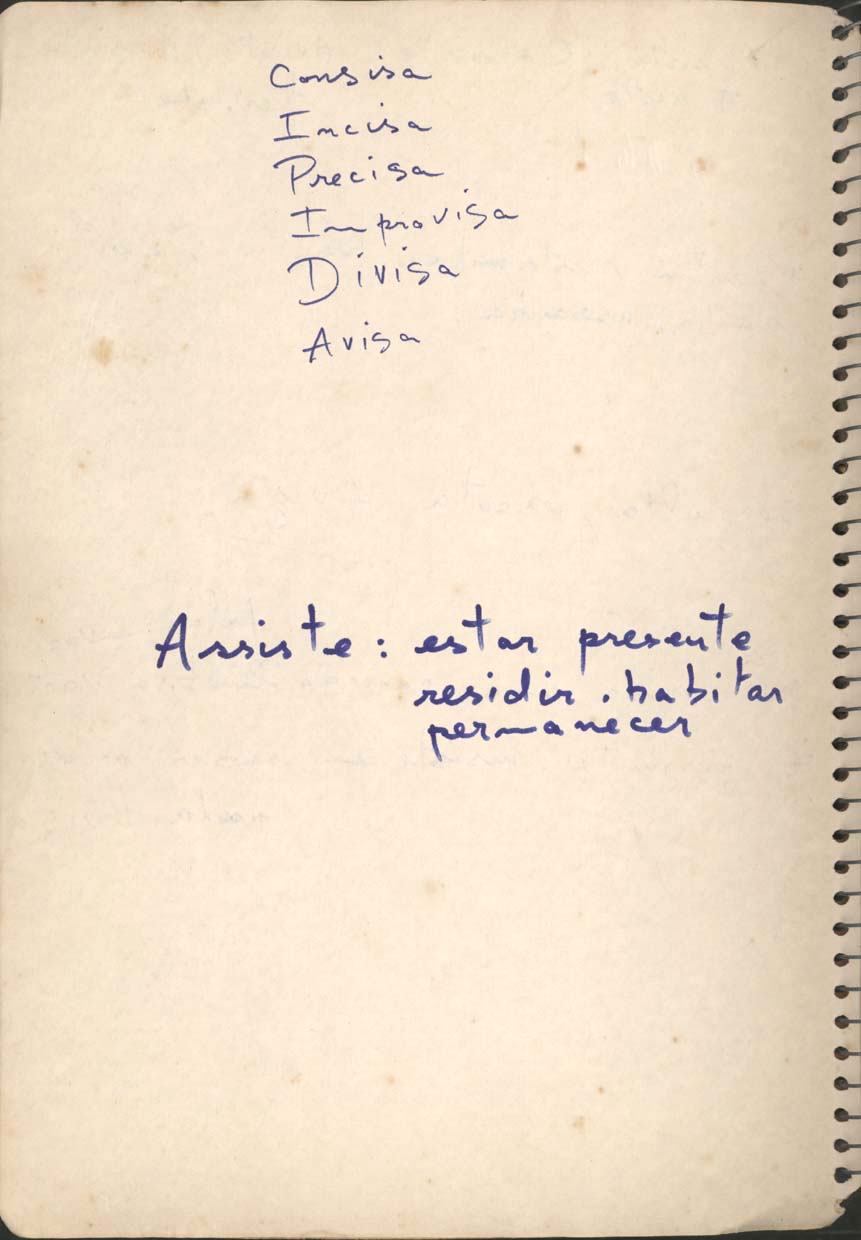 Consisa
Incisa
Precisa
Improvisa
Divisa
Avisa
Assiste: estar presente
residir. habitar
permanecer